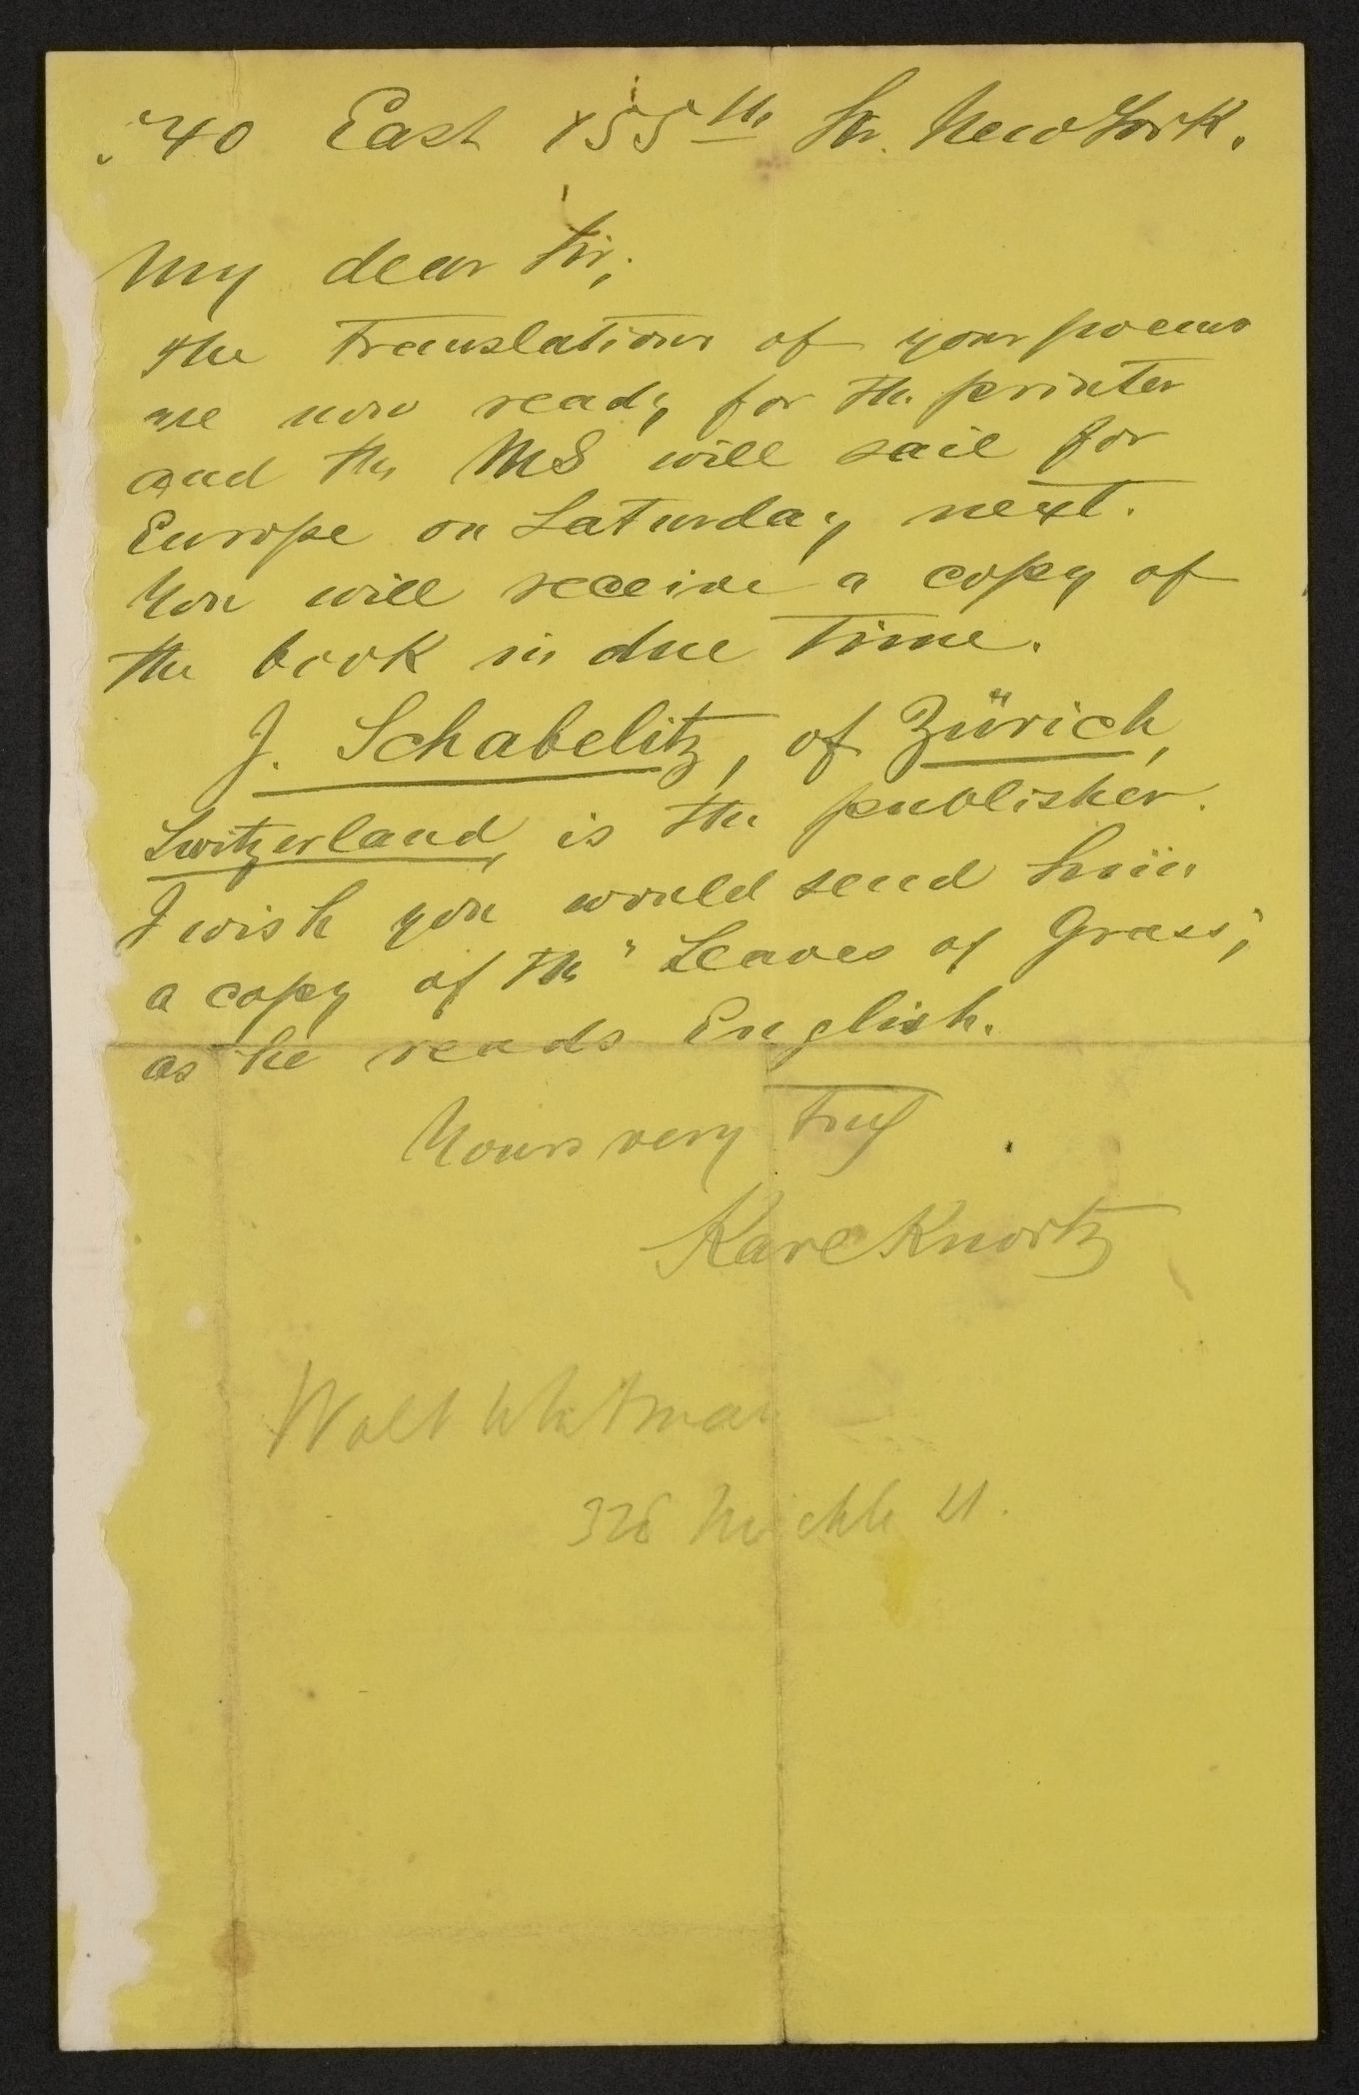 540 East 155th Str. New York.
My dear Sir;
the translations of your poems
are now ready for the printer
and the MS will sail for
Europe on Saturday next.
You will receive a copy of
the book in due time.
J. Schabelitz, of Zürich,
Switzerland, is the publisher.
I wish you would send him
a copy of the "Leaves of Grass",
as he reads English.
Yours very truly
Karl Knortz
Walt Whitman
328 Mickle St.